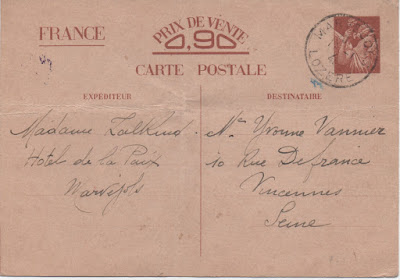 FRANCE
PRIX DE VENTE
0,90
CARTE POSTALE
EXPÉDITEUR
DESTINATAIRE
LOZERE
Madame Zalkind
Hotel de la Paix
Marvejols
Yvonne Vannier
10 Rue Defrance
Vincennes
Seine